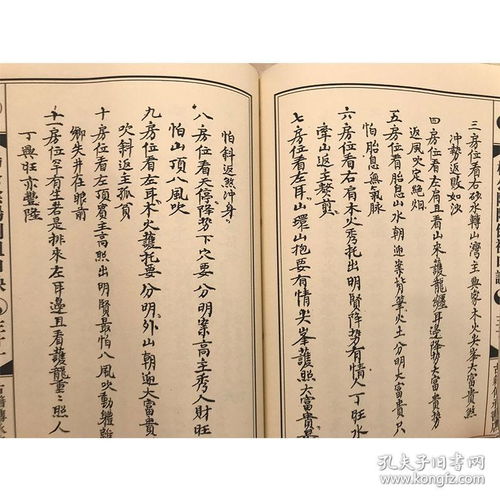 三房位看右砂水轉山灣主興家木火來照大富貴照
沖勢返敗如沙
四房位看左肩且看山來護龍纏耳邊降勢大富貴勢
返風吹定絕烟
五房位看胎息山水朝迎峯背筆火土分明大富貴只
怕胎息無氣脉
六房位看右肩木火秀托出明賢降勢有情人丁旺水
牽山返主熬煎
七房位看左耳山環山抱要有情尖峯護照大富貴最
怕斜返煞沖身
八房位看天停降勢下穴要分明案高主秀人財旺
怕山頂八風吹
九房位看左耳木火護托要分明外山朝迎大富貴
吹斜返主孤貧
十房位看左頂賓主高照出明賢最怕八風吹動離
鄉失井在眼前
十一房位罕有生若是排來左耳邊且看護龍重重照人
丁興旺亦豐隆
三十一
孔夫子旧书网
kongfz.com